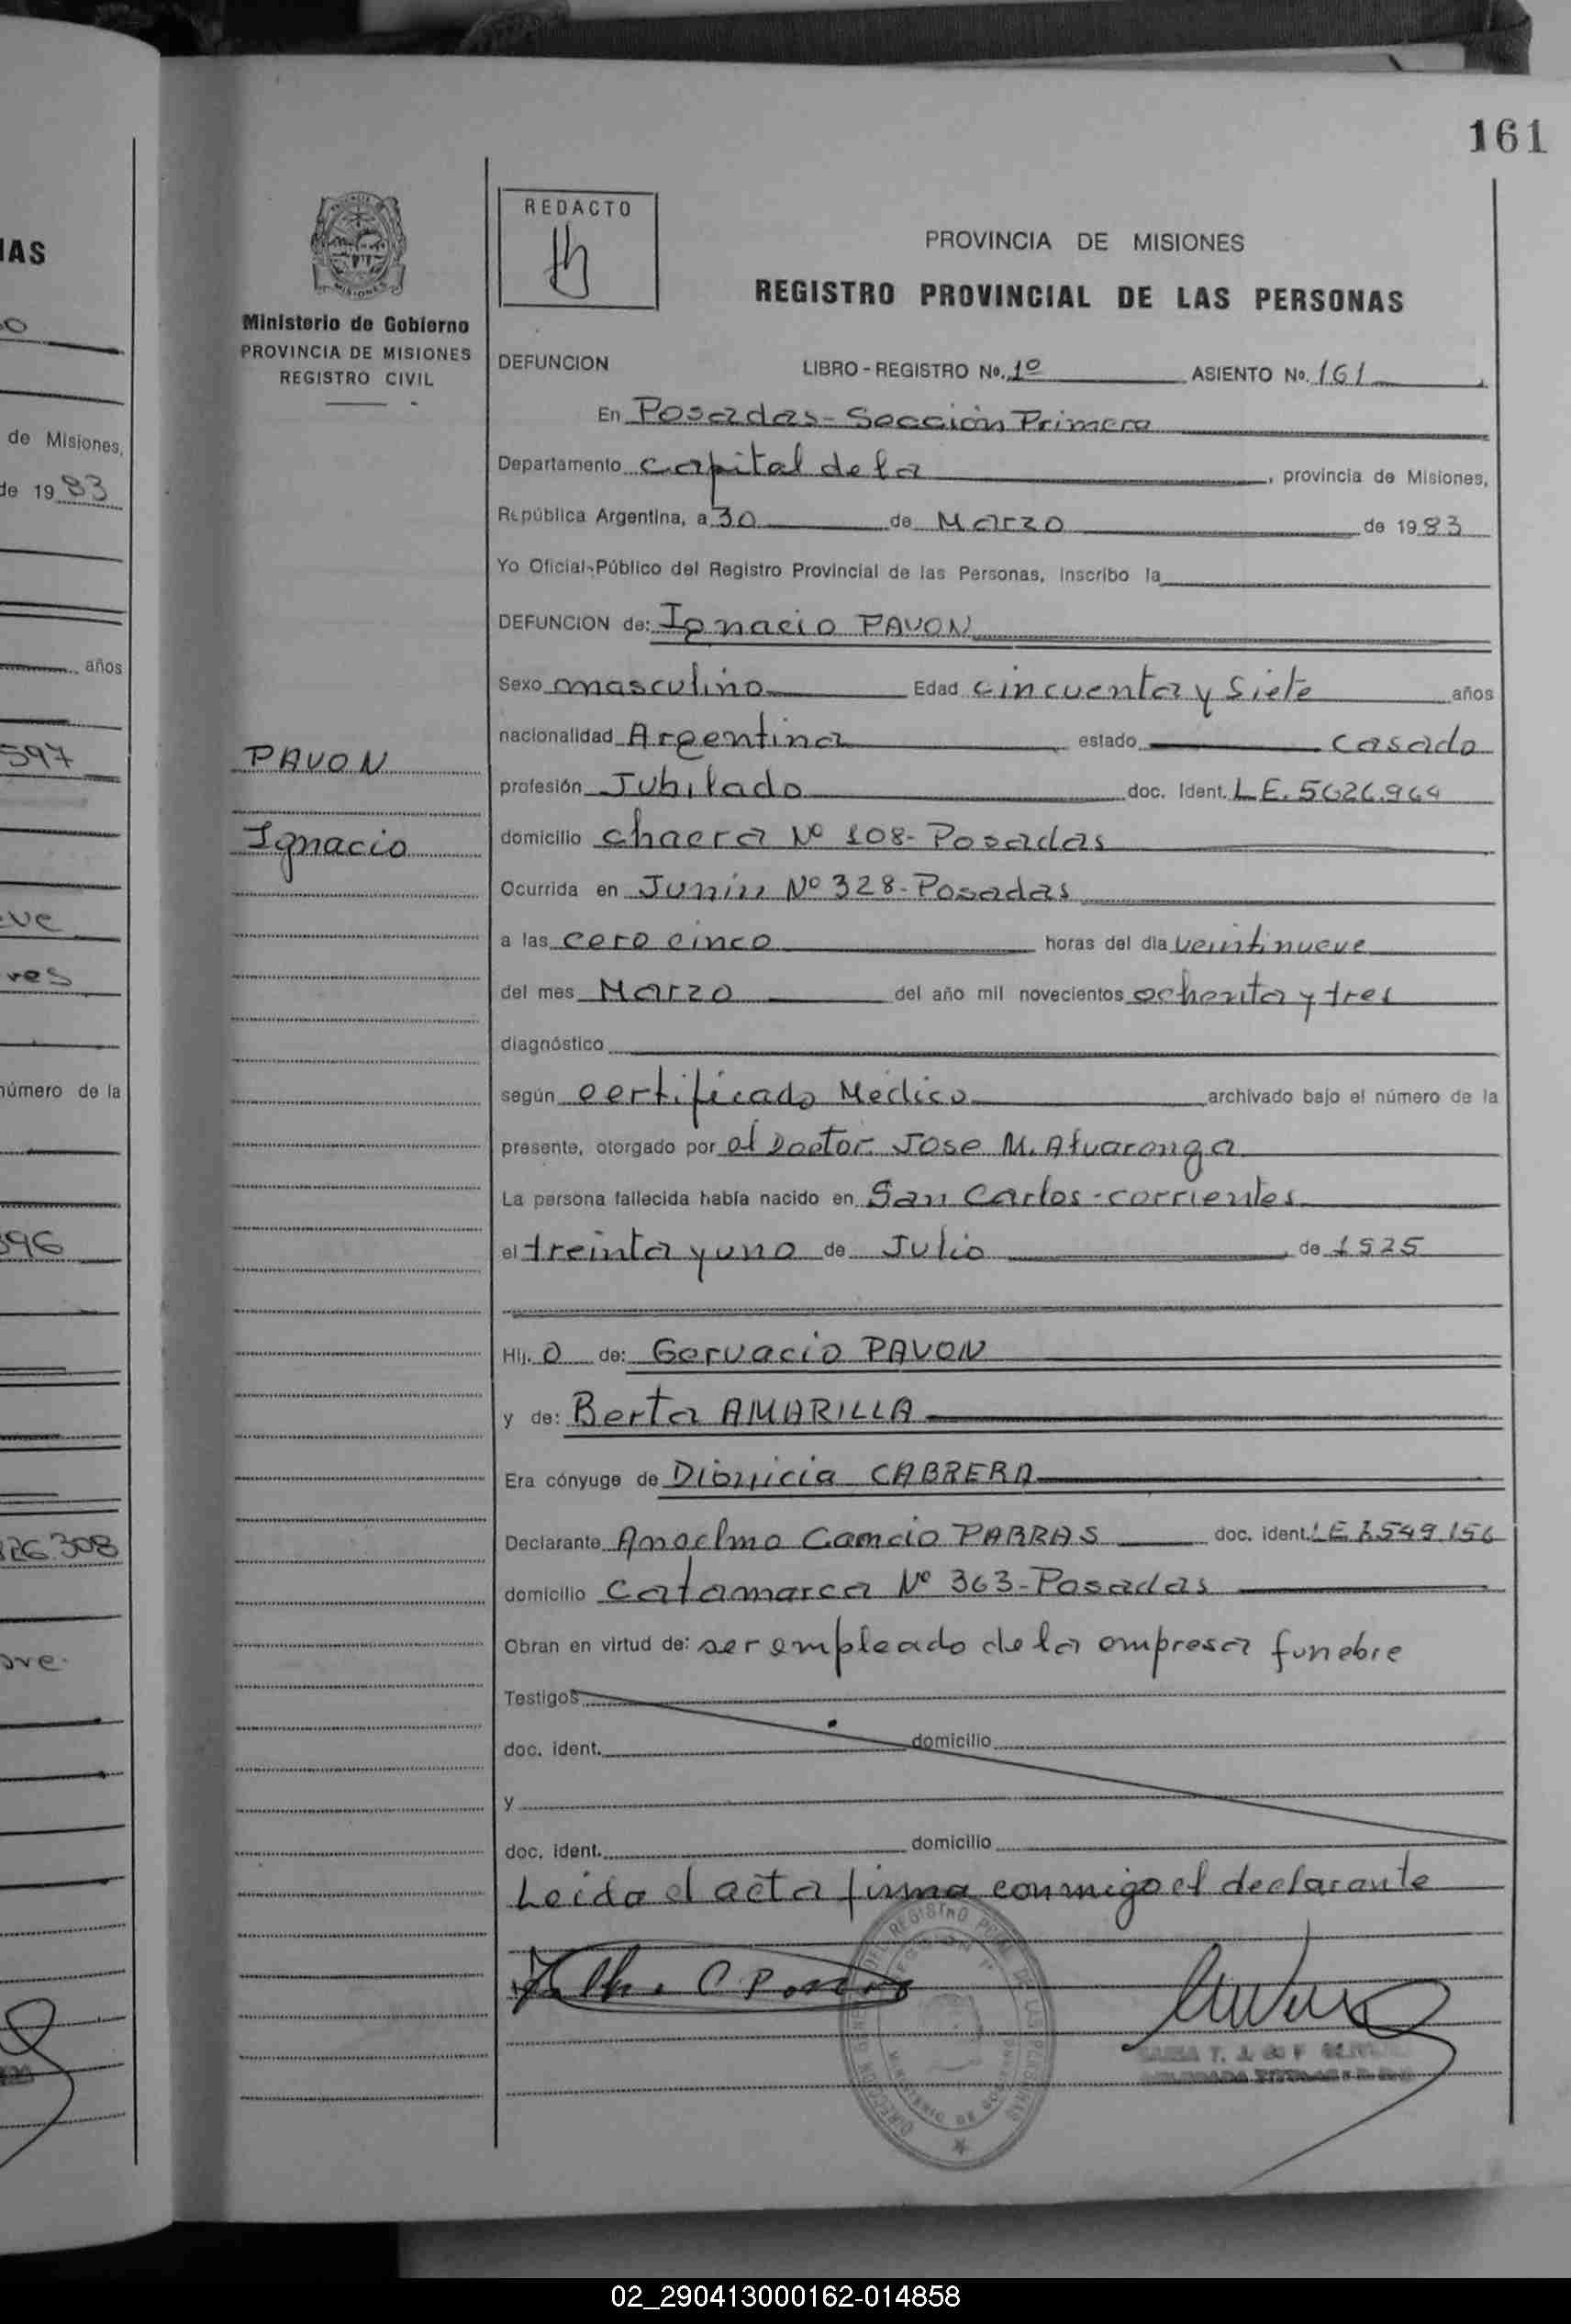 161
IAS
o
de Misiones,
de 1983
años
597
ve
res
número de la
396
26.308
bre.
MISIONES
Ministerio de Gobierno
PROVINCIA DE MISIONES
REGISTRO CIVIL
PAVON
Ignacio
REDACTO
PROVINCIA DE MISIONES
REGISTRO PROVINCIAL DE LAS PERSONAS
DEFUNCION LIBRO - REGISTRO No. 1º ASIENTO No. 161
En Posadas - Sección Primera
Departamento Capital de la , provincia de Misiones,
República Argentina, a 30 de Marzo de 1983
Yo Oficial Público del Registro Provincial de las Personas, inscribo la
DEFUNCION de: Ignacio PAVON
Sexo masculino Edad cincuenta y siete años
nacionalidad Argentina estado casado
profesión Jubilado doc. Ident. L.E. 5626.964
domicilio chacra Nº 108- Posadas
Ocurrida en Junín Nº 328- Posadas
a las cero cinco horas del día veintinueve
del mes Marzo del año mil novecientos ochenta y tres
diagnóstico
según certificado Medico archivado bajo el número de la
presente, otorgado por el Doctor Jose M. Alvarenga
La persona fallecida había nacido en San Carlos - corrientes
el treinta y uno de Julio de 1925
Hij. o de: Gervacio PAVON
y de: Berta AMARILLA
Era cónyuge de Dionicia CABRERA
Declarante Anselmo Cancio PARRAS doc. ident. LE 7.549.156
domicilio Catamarca Nº 363- Posadas
Obran en virtud de: ser empleado de la empresa funebre
Testigos
doc. ident. domicilio
y
doc. ident. domicilio
Leída el acta firma conmigo el declarante
02_290413000162-014858